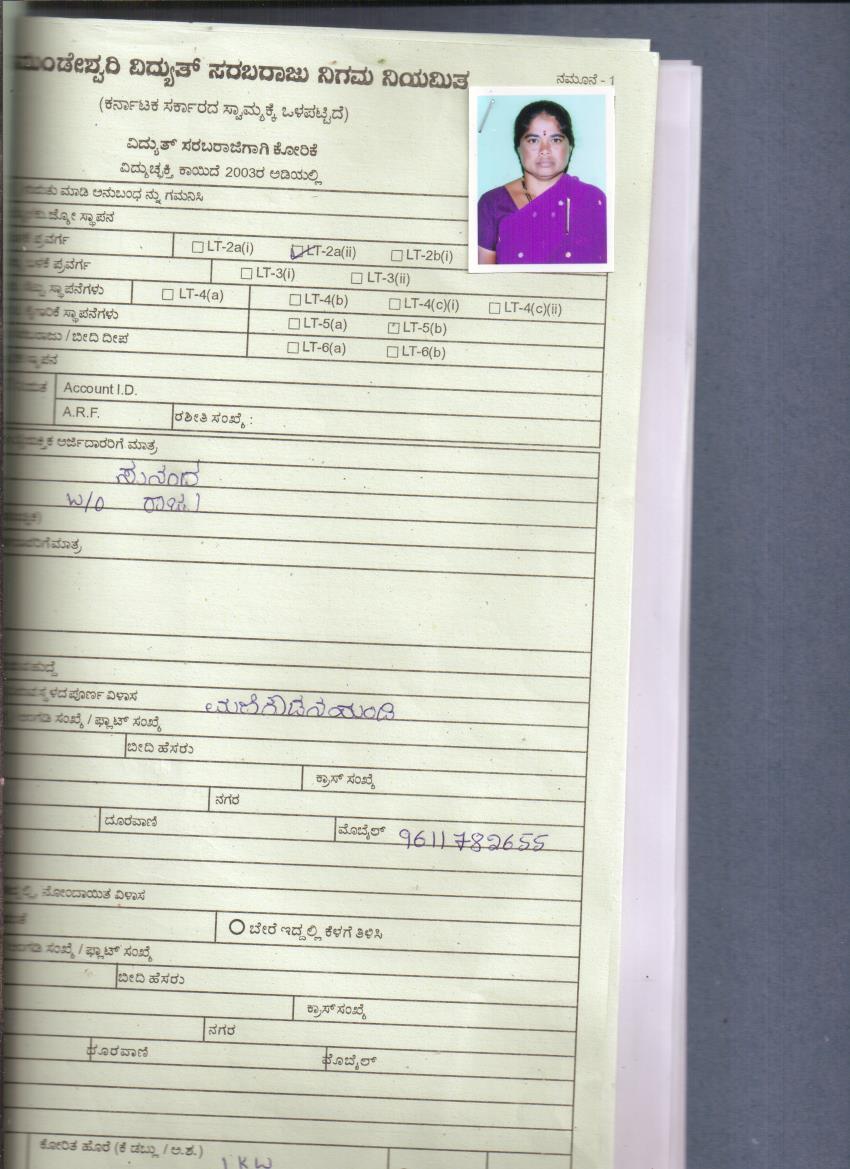 ವಿದ್ಯುತ್ ಸರಬರಾಜು ನಿಗಮ ನಿಯಮಿತ
ನಮೂನೆ - 1
(ಕರ್ನಾಟಕ ಸರ್ಕಾರದ ಸ್ವಾಮ್ಯಕ್ಕೆ ಒಳಪಟ್ಟಿದೆ)
ವಿದ್ಯುತ್ ಸರಬರಾಜಿಗಾಗಿ ಕೋರಿಕೆ
ವಿದ್ಯುಚ್ಛಕ್ತಿ ಕಾಯಿದೆ 2003ರ ಅಡಿಯಲ್ಲಿ
ಮಾಡಿ ಅನುಬಂಧ ನ್ನು ಗಮನಿಸಿ
ಸ್ಥಾಪನ
ಪ್ರವರ್ಗ LT-2a(i) LT-2a(ii) LT-2b(i)
ಪ್ರವರ್ಗ LT-3(i) LT-3(ii)
ಸ್ಥಾಪನೆಗಳು LT-4(a) LT-4(b) LT-4(c)(i) LT-4(c)(ii)
ಸ್ಥಾಪನೆಗಳು LT-5(a) LT-5(b)
/ ಬೀದಿ ದೀಪ LT-6(a) LT-6(b)
Account I.D.
A.R.F. ರಶೀತಿ ಸಂಖ್ಯೆ :
ಅರ್ಜಿದಾರರಿಗೆ ಮಾತ್ರ
ಸುನಂದ
W/O
ವಿಳಾಸ
ಸಂಖ್ಯೆ / ಫ್ಲಾಟ್ ಸಂಖ್ಯೆ
ಬೀದಿ ಹೆಸರು
ಕ್ರಾಸ್ ಸಂಖ್ಯೆ
ನಗರ
ದೂರವಾಣಿ ಮೊಬೈಲ್ 9611782655
ನೋಂದಾಯಿತ ವಿಳಾಸ
ಬೇರೆ ಇದ್ದಲ್ಲಿ ಕೆಳಗೆ ತಿಳಿಸಿ
ಸಂಖ್ಯೆ / ಫ್ಲಾಟ್ ಸಂಖ್ಯೆ
ಬೀದಿ ಹೆಸರು
ಕ್ರಾಸ್ ಸಂಖ್ಯೆ
ನಗರ
ದೂರವಾಣಿ ಮೊಬೈಲ್
ಕೋರಿತ ಹೊರೆ (ಕೆ ಡಬ್ಲು / ಅ.ಶ.) 1 KW